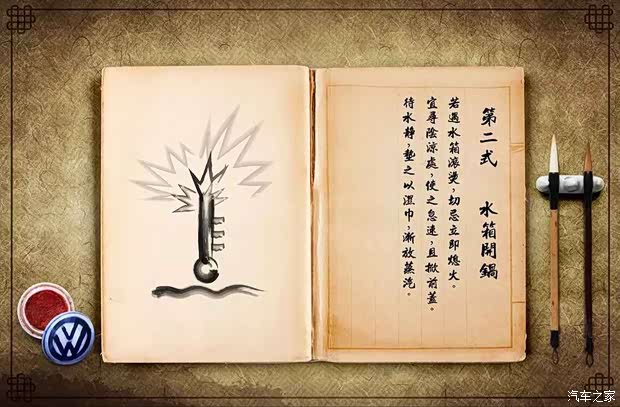 第二式 水箱開鍋
若遇水箱滾燙，切忌立即熄火。
宜尋陰涼處，使之怠速，且掀前蓋。
待水靜，墊之以濕巾，漸放蒸汽。
汽车之家